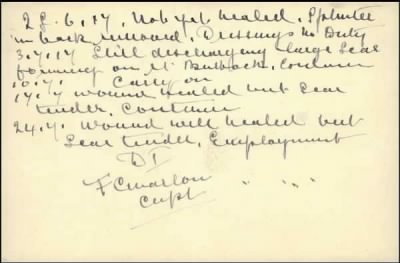 28.6.17. Not yet healed, Splinter
in back removed, Dressings M Duty
3.7.17 Still discharging large scar
forming on Rt Buttock, Continue
10.7. Carry on
17.7 wound healed but scar
tender, Continue
24.7. Wound well healed but
scar tender, Employment
D I
Capt " " "